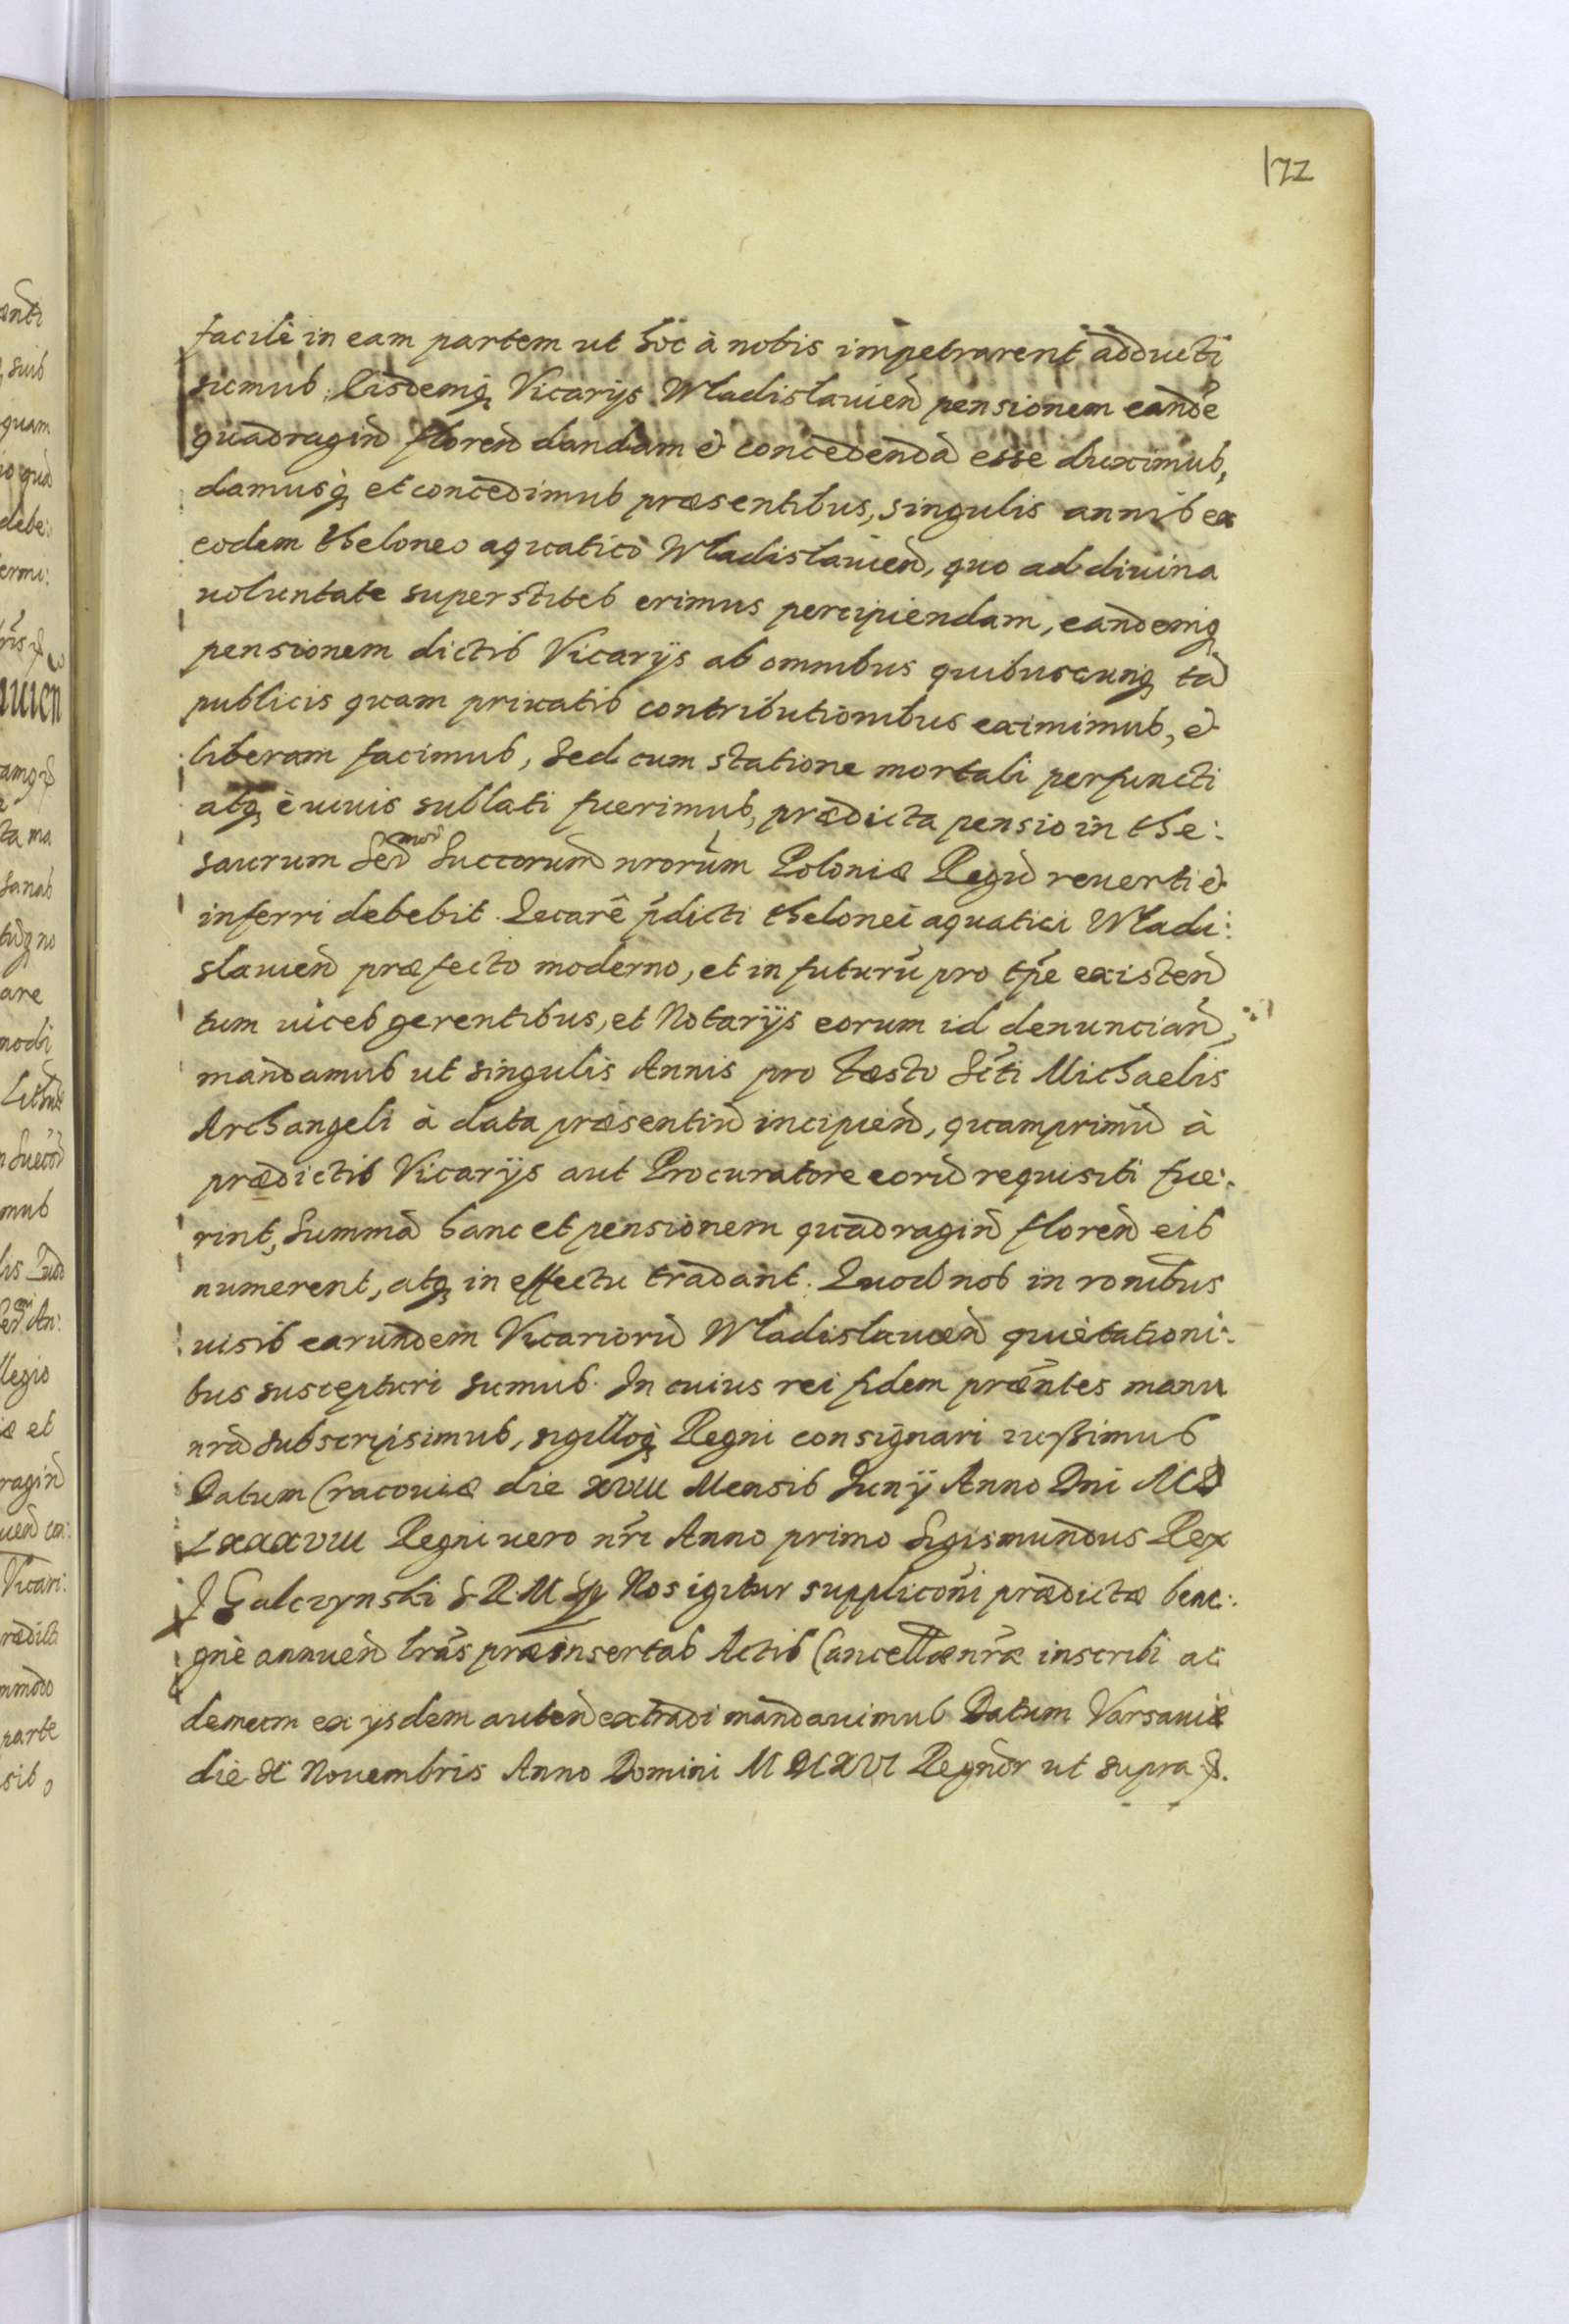 172
facilè in eam partem ut hoc à nobis impetrarent adducti
sumus. Eisdemq Vicarijs Wladislauien pensionem eandē
quadragin floren dandam et concedendā esse duximus,
damusq et concedimus præsentibus, singulis annis ex
eodem theloneo aquatico Wladislauien, quo ad diuina
uoluntate superstites erimus percipiendam, eandemq
pensionem dictis Vicarijs ab omnibus quibuscunq tā
publicis quam priuatis contributionibus eximimus, et
liberam facimus, sed cum statione mortali perfuncti
atq è uiuis sublati fuerimus, prædicta pensio in the:
saurum Sermor Succorum nrorum Poloniæ Regū reuerti et
inferri debebit. Quarē pdicti thelonei aquatici Wladi:
slauien præfecto moderno, et in futurū pro tpe existen
tum uices gerentibus, et Notarijs eorum id denuncian,
mandamus ut singulis Annis pro festo Scti Michaelis
Archangeli à data præsentiū incipien, quamprimū à
prædictis Vicarijs aut Procuratore eorū requisiti fue:
rint, Summā hanc et pensionem quadragin floren eis
numerent, atq in effectu tradant. Quod nos in ronibus
uisis earundem Vicariorū Wladislauien quietationi:
bus suscepturi sumus. In cuius rei fidem præntes manu
nrā subscripsimus, sigilloq Regni consignari iussimus
Datum Cracouiæ die XVIII Mensis Junij Anno Dni MD
LXXXVIII Regni uero nri Anno primo Sigismundus Rex
J Galczynski S R M Nos igitur suppliconi prædictæ beni:
gnè annuen lras præinsertas Actis Cancellæ nræ inscribi ac
demum ex ijsdem auten extradi mandauimus Datum Varsauiæ
die XI Nouembris Anno Domini MDCXVI Regnor ut supra